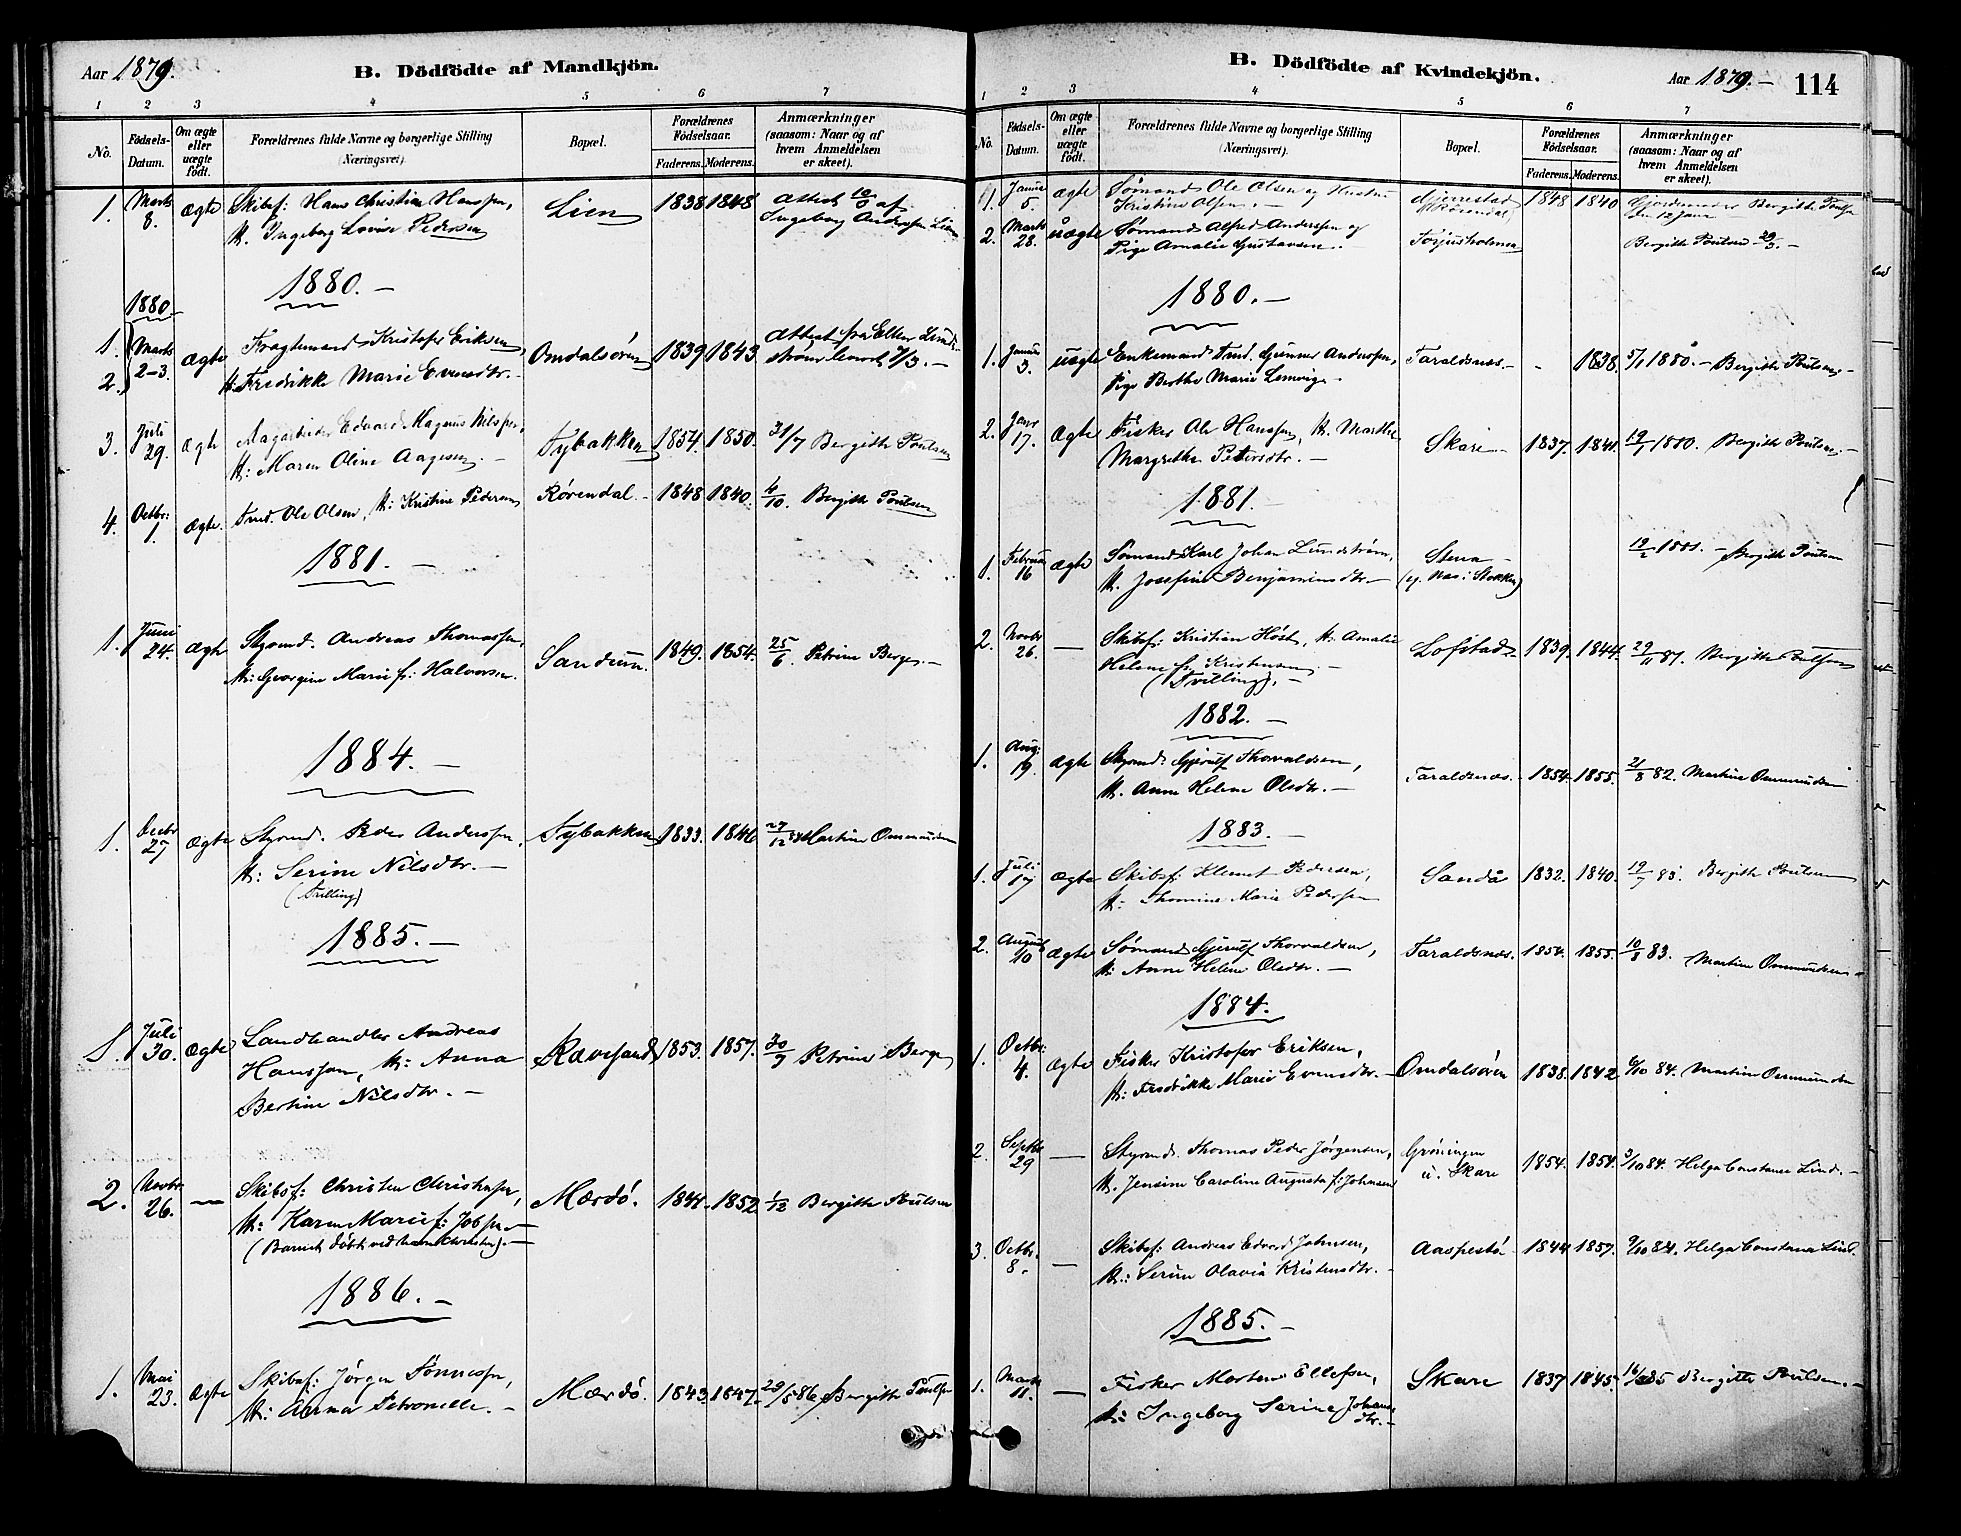 Aar 1879.
B. Dödfödte af Mandkjön.
1 2 3 4 5 6 7
No.
Födsels-Datum.
Om ægte eller uægte födt.
Forældrenes fulde Navne og borgerlige Stilling (Næringsvei).
Bopæl.
Forældrenes Födselsaar.
Faderens. Moderens.
Anmærkninger (saasom: Naar og af hvem Anmeldelsen er skeet).
1. Marts 8. ægte Skibsf: Hans Christian Hanssen, Lien 1838 1848 Attest 10/3 af
H. Ingeborg Lovise Pedersen Ingeborg Anderssen Lien
1880. –
1880.
1. 2. Marts 2–3. ægte Fragtemand Kristofer Eriksen, Omdalsøren 1839 1843. Attest fra Ellen
H. Fredrikke Marie Evensdtr. – 7/3. –
3. Juli 29. ægte Edvard Magnus Nilssen, Tybakken 1854. 1850. 31/7 Bergithe Poulsen
H: Maren Oline Aagesen. –
4. Octbr: 1. ægte. Tmd. Ole Olsen, H: Kristine Pedersen Rørendal – 1848 1840. 4/10. Bergithe Poulsen
1881. –
1. Juni 24. ægte Styrmd. Andreas Thomassen, Sandum. 1849. 1854. 25/6. Petrine Berge. –
H: Georgine Marie f: Halvorsen.
1884. –
1. Decbr 27 ægte Styrmd. Peder Anderssen, Tybakken 1833. 1846 27/12 84 Martine Ommundsen
H: Serine Nilsdtr. –
(Tvilling)
1885. –
1. Juli 30. ægte Landhandler Andreas Rævesand 1853. 1857. 30/7 Petrine Berge
Hanssen, H: Anna
Bertine Nilsdtr. –
2. Novbr 26. — Skibsf: Christen Christensen, Mærdö. 1841. 1852 1/12 Bergithe Poulsen
H: Karen Marie f: Jobsen –
(Barnet döbt ved Navn Christen). –
1886. –
1. Mai 23. ægte Skibsf: Jörgen Tönnessen, Mærdö. 1843. 1847. 29/5 86 Bergithe Poulsen
H: Anna Petronelle. –
B. Dödfödte af Kvindekjön.
Aar 1879. –
114
1 2 3 4 5 6 7
No.
Födsels-Datum.
Om ægte eller uægte födt.
Forældrenes fulde Navne og borgerlige Stilling (Næringsvei).
Bopæl.
Forældrenes Födselsaar.
Faderens. Moderens.
Anmærkninger (saasom: Naar og af hvem Anmeldelsen er skeet).
1. Januar 5. ægte Sømand Ole Olsen og Hustru Gjerrestad 1848 1840 Gjordemoder Bergithe Poulsen
Kristine Olsen. – (Rörendal) den 12 Janr
2. Marts 28. uægte Sømand Alfred Anderssen og Torjusholmen Bergithe Poulsen 29/3. –
Pige Amalie Gustavsen.
1880. –
1. Januar 3. uægte Enkemand Tmd. Gunner Anderssen, Taraldsnes. – - 1838. 5/1 1880. – Bergithe Poulsen. –
Pige Berthe Marie Lemvig. –
2. Janr 17. ægte Fisker Ole Hanssen, H. Marthe Skare – 1837. 1841. 19/1 1880. Bergithe Poulsen. –
Margrethe Petersdtr. –
1881. –
1. Februar 16 ægte Sømand Karl Johan Lundstrøm, Stena – 19/2 1881. – Bergithe Poulsen
H. Josefine Benjaminsdtr. – (eg. Næs i Stokken)
2. Novbr 26. — Skibsf: Kristian Höst, H. Amalie Lofstad – 1839. 1844. 29/11 81. Bergithe Poulsen
Helene f: Kristensen. –
(Tvilling). –
1882. –
1. Aug: 19. ægte Styrmd. Gjerulf Thorvaldsen, Taraldsnes. 1854. 1855. 21/8 82. Martine Ommundsen
H. Anne Helene Olsdtr. –
1883. –
1. Juli 17 ægte Skibsf: Klemet Pedersen, Sandå 1832. 1840. 19/7 83. Bergithe Poulsen
H: Thomine Marie Pedersen
2. August 10 ægte Sømand Gjerulf Thorvaldsen, Taraldsnes. 1854. 1855. 10/8 83. Martine Ommundsen
H. Anne Helene Olsdtr. –
1884.
1. Octbr: 4. ægte Fisker Kristofer Eriksen, Omdalsøren 1838. 1842 6/10 84. Martine Ommundsen
H: Fredrikke Marie Evensdtr. –
2. Septbr 29 — Styrmd. Thomas Peder Jörgensen, Gröningen u. Skare 1854. 1854. 3/10 84. Helga Constance Lind. –
H. Jensine Caroline Augusta f: Johnsen
3. Octbr. 8. — Skibsf: Andreas Edvard Johnsen, Aaspestö – 1844 1857. 9/10 84. Helga Constance Lind
H.: Serine Olavia Kristensdtr. –
1885. –
1. Marts 11. — Fisker Morten Ellefsen, Skare 1837 1845. 16/3 85 Bergithe Poulsen. –
H: Ingeborg Serine Johansdtr. –